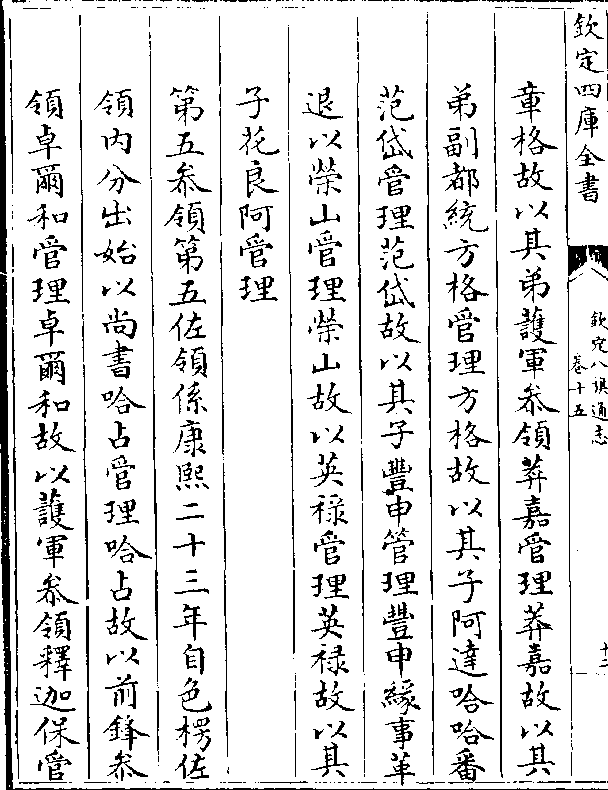 欽定四庫全書
欽定八旗通志
卷十五
十二
章格故以其弟護軍叅領莽嘉管理莽嘉故以其
弟副都統方格管理方格故以其子阿達哈哈番
范岱管理范岱故以其子豐申管理豐申緣事革
退以榮山管理榮山故以英祿管理英祿故以其
子花良阿管理
第五叅領第五佐領係康熙二十三年自色楞佐
領内分出始以尚書哈占管理哈占故以前鋒叅
領卓爾和管理卓爾和故以護軍叅領釋迦保管